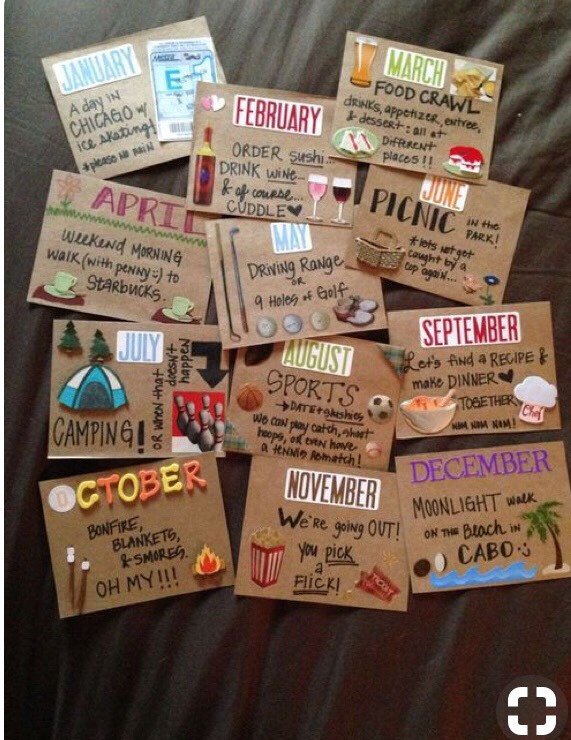 JANUARY
A day in
CHICAGO w/
ice skating!
*please no rain
E
FEBRUARY
ORDER sushi...
DRINK wine...
& of course...
CUDDLE♥
MARCH
FOOD CRAWL
drinks, appetizer, entree,
& dessert: all at
Different
places!!
APRIL
Weekend MORNING
walk (with penny :) to
STARBUCKS.
MAY
DRIVING RANGE
OR
9 Holes of Golf
JUNE
PICNIC IN the
PARK!
*lets not get
caught by a
cop again...
JULY
CAMPING!
OR when that
doesn't
happen
AUGUST
SPORTS
→DATE + slushies
We can play catch, shoot
hoops, or even have
a tennis rematch!
SEPTEMBER
Let's find a RECIPE &
make DINNER♥
TOGETHER
NOM NOM NOM!
Chef
OCTOBER
BONFIRE,
BLANKETS,
& SMORES.
OH MY!!!
NOVEMBER
We're going OUT!
you pick
a
FLICK!
TICKET
DECEMBER
MOONLIGHT walk
ON the Beach in
CABO :)